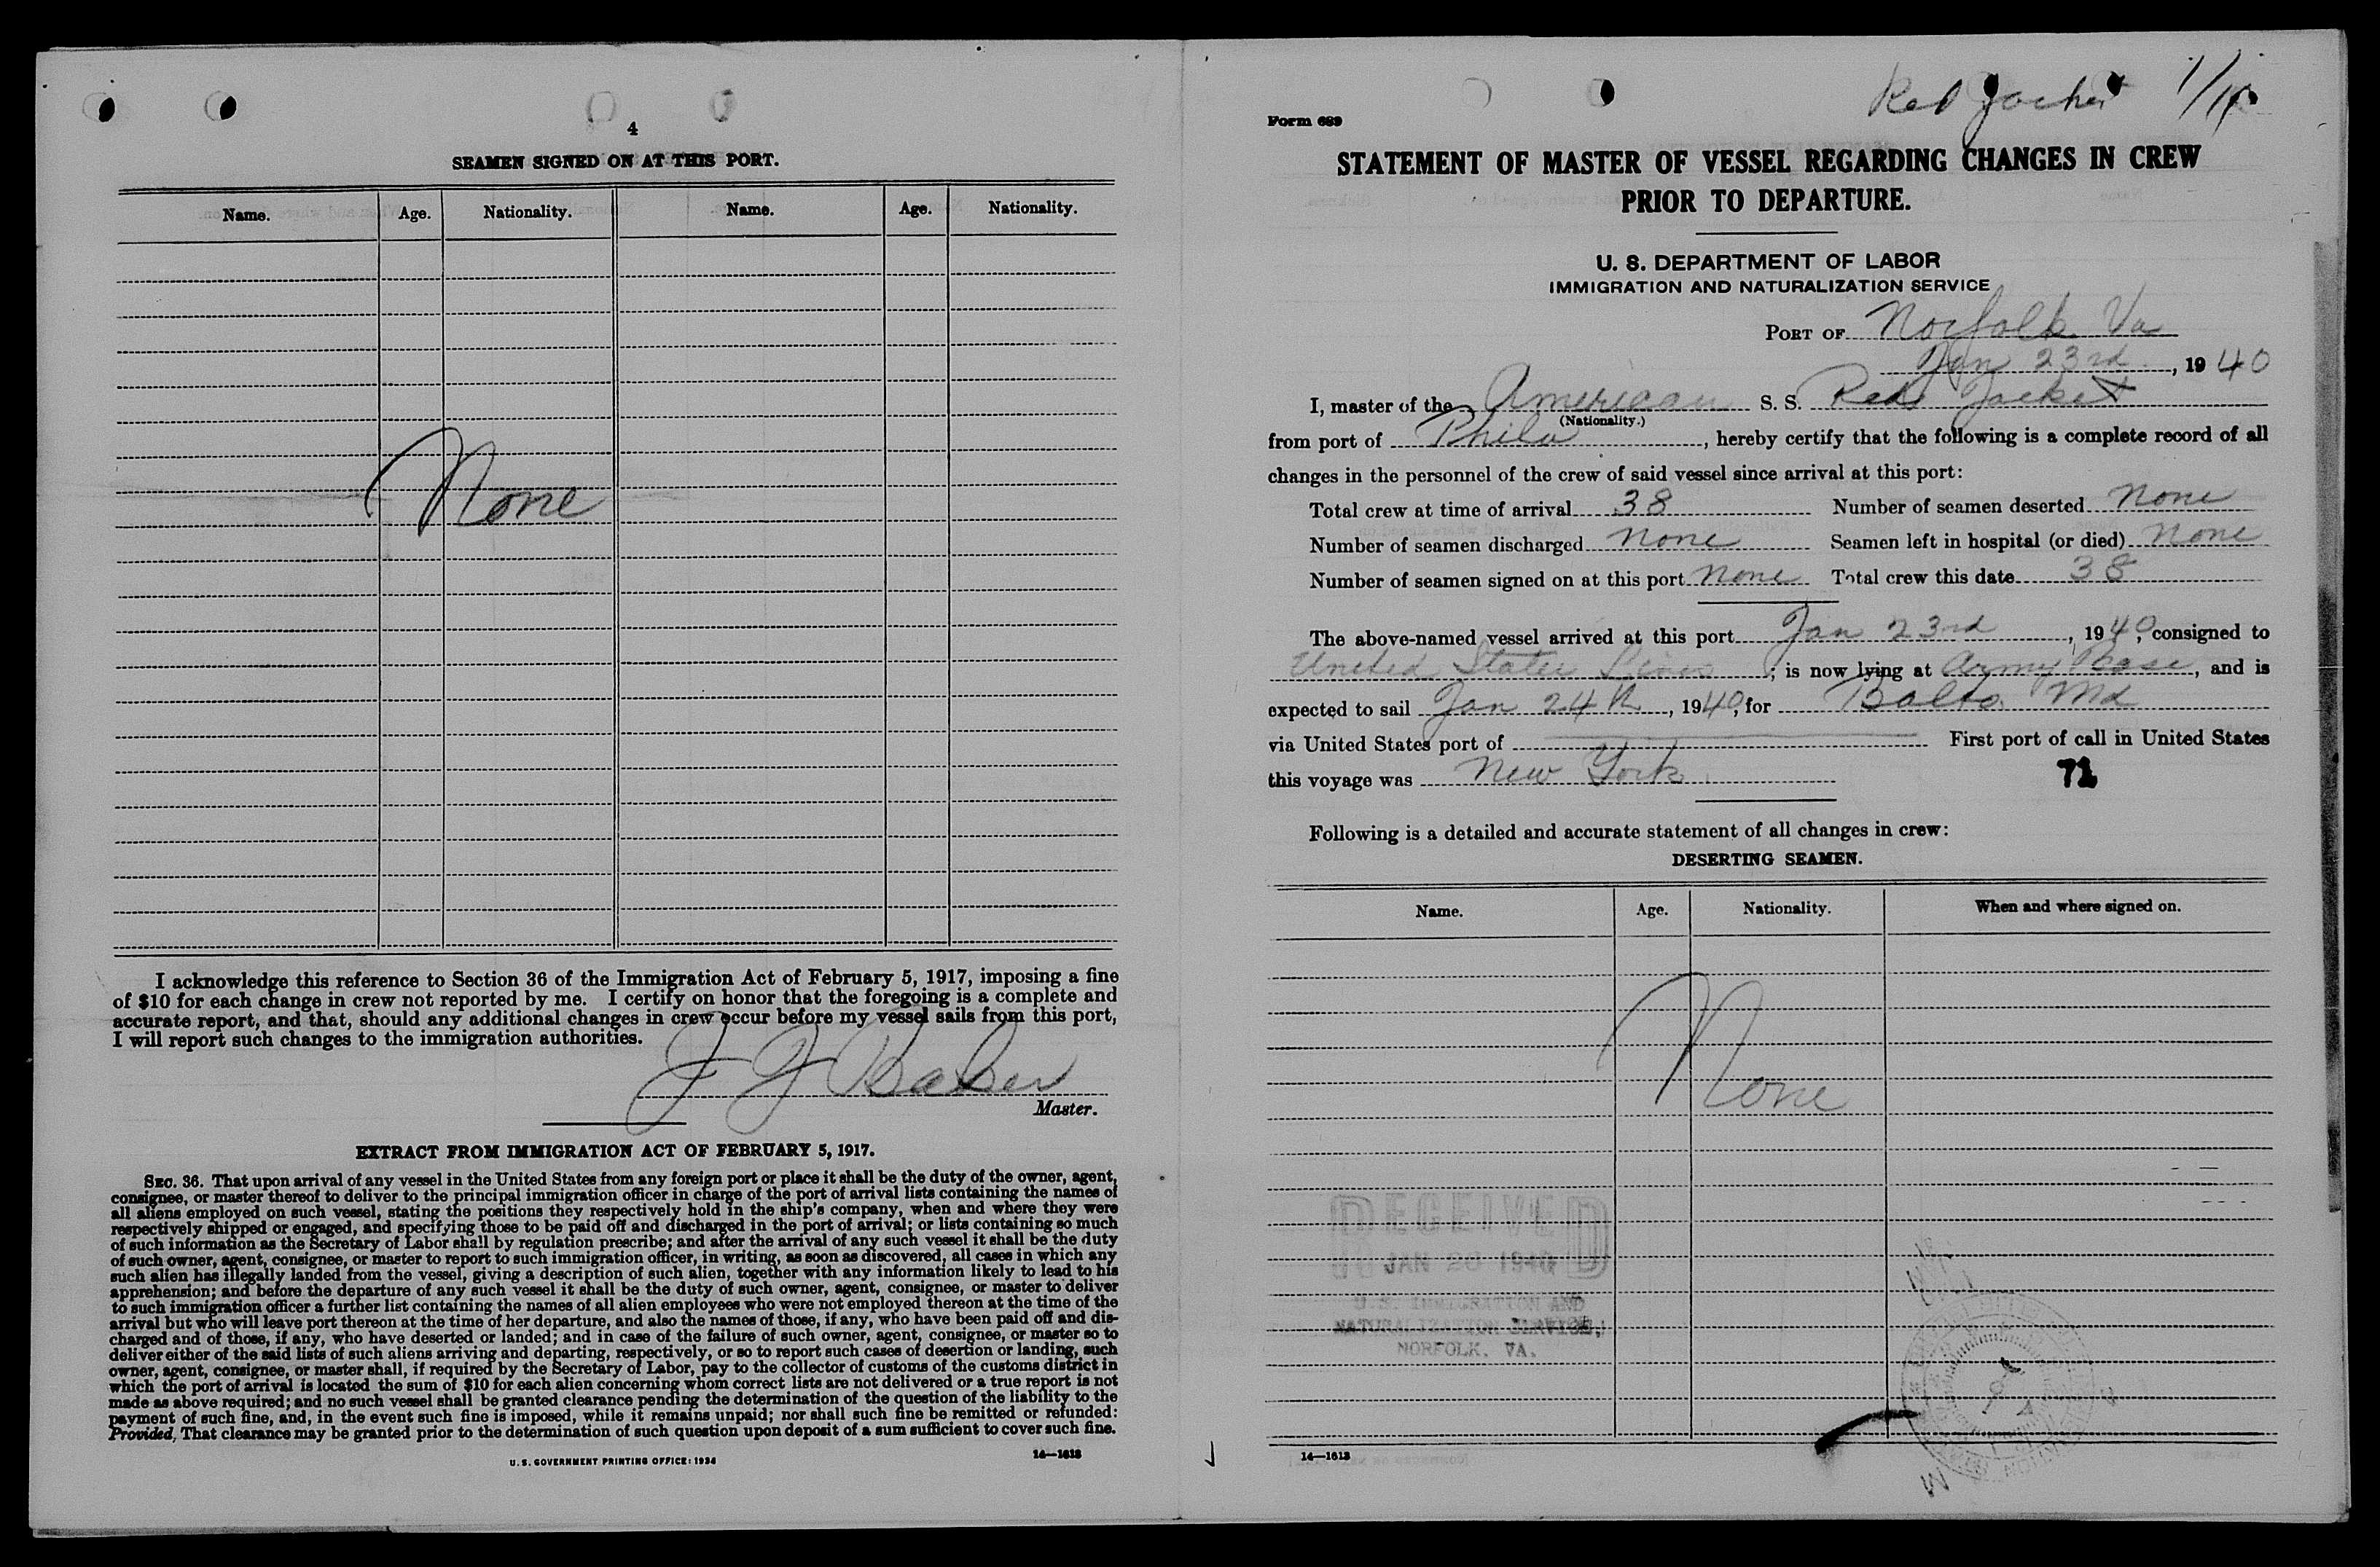 4
SEAMEN SIGNED ON AT THIS PORT.
Name. Age. Nationality. Name. Age. Nationality.
None
I acknowledge this reference to Section 36 of the Immigration Act of February 5, 1917, imposing a fine
of $10 for each change in crew not reported by me. I certify on honor that the foregoing is a complete and
accurate report, and that, should any additional changes in crew occur before my vessel sails from this port,
I will report such changes to the immigration authorities.
J J Baker
Master.
EXTRACT FROM IMMIGRATION ACT OF FEBRUARY 5, 1917.
SEC. 36. That upon arrival of any vessel in the United States from any foreign port or place it shall be the duty of the owner, agent,
consignee, or master thereof to deliver to the principal immigration officer in charge of the port of arrival lists containing the names of
all aliens employed on such vessel, stating the positions they respectively hold in the ship's company, when and where they were
respectively shipped or engaged, and specifying those to be paid off and discharged in the port of arrival; or lists containing so much
of such information as the Secretary of Labor shall by regulation prescribe; and after the arrival of any such vessel it shall be the duty
of such owner, agent, consignee, or master to report to such immigration officer, in writing, as soon as discovered, all cases in which any
such alien has illegally landed from the vessel, giving a description of such alien, together with any information likely to lead to his
apprehension; and before the departure of any such vessel it shall be the duty of such owner, agent, consignee, or master to deliver
to such immigration officer a further list containing the names of all alien employees who were not employed thereon at the time of the
arrival but who will leave port thereon at the time of her departure, and also the names of those, if any, who have been paid off and dis-
charged and of those, if any, who have deserted or landed; and in case of the failure of such owner, agent, consignee, or master so to
deliver either of the said lists of such aliens arriving and departing, respectively, or so to report such cases of desertion or landing, such
owner, agent, consignee, or master shall, if required by the Secretary of Labor, pay to the collector of customs of the customs district in
which the port of arrival is located the sum of $10 for each alien concerning whom correct lists are not delivered or a true report is not
made as above required; and no such vessel shall be granted clearance pending the determination of the question of the liability to the
payment of such fine, and, in the event such fine is imposed, while it remains unpaid; nor shall such fine be remitted or refunded:
Provided, That clearance may be granted prior to the determination of such question upon deposit of a sum sufficient to cover such fine.
U. S. GOVERNMENT PRINTING OFFICE: 1934
14—1613
Red Jacket
Form 689
STATEMENT OF MASTER OF VESSEL REGARDING CHANGES IN CREW
PRIOR TO DEPARTURE.
U. S. DEPARTMENT OF LABOR
IMMIGRATION AND NATURALIZATION SERVICE
PORT OF Norfolk Va
Jan 23rd, 1940
I, master of the American S. S. Red Jacket
(Nationality.)
from port of Phila, hereby certify that the following is a complete record of all
changes in the personnel of the crew of said vessel since arrival at this port:
Total crew at time of arrival 38 Number of seamen deserted None
Number of seamen discharged None Seamen left in hospital (or died) None
Number of seamen signed on at this port None Total crew this date 38
The above-named vessel arrived at this port Jan 23rd, 1940, consigned to
United States Lines; is now lying at Army Base, and is
expected to sail Jan 24th, 1940, for Balto. Md
via United States port of First port of call in United States
this voyage was New York
71
Following is a detailed and accurate statement of all changes in crew:
DESERTING SEAMEN.
Name. Age. Nationality. When and where signed on.
None
RECEIVED
JAN 1940
U.S. IMMIGRATION AND
NATURALIZATION SERVICE,
NORFOLK. VA.
14—1613